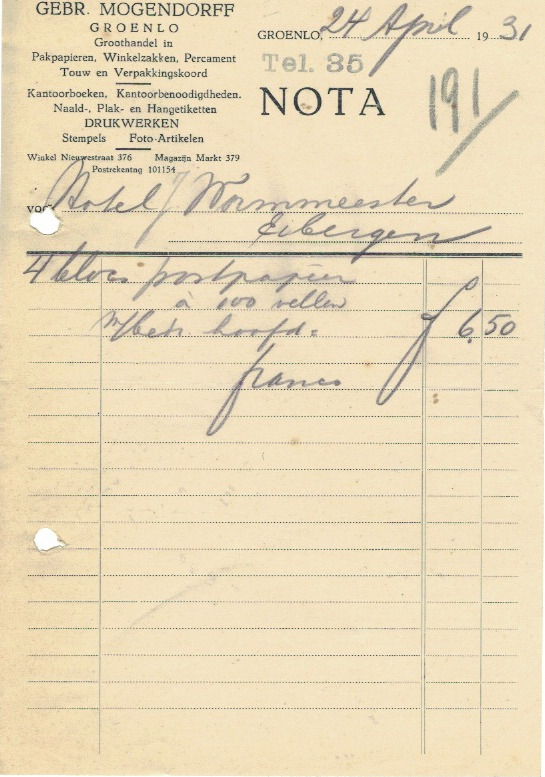 GEBR. MOGENDORFF
GROENLO
Groothandel in
Pakpapieren, Winkelzakken, Percament
Touw en Verpakkingskoord
Kantoorboeken, Kantoorbenoodigdheden.
Naald-, Plak- en Hangetiketten
DRUKWERKEN
Stempels Foto-Artikelen
Winkel Nieuwestraat 376 Magazijn Markt 379
Postrekening 101154
GROENLO, 24 April 1931
Tel. 35
NOTA
191/
voor Hotel Wormmeester
Eibergen
4 blocs postpapier
à 100 vellen
m/betr hoofd. f 6,50
franco